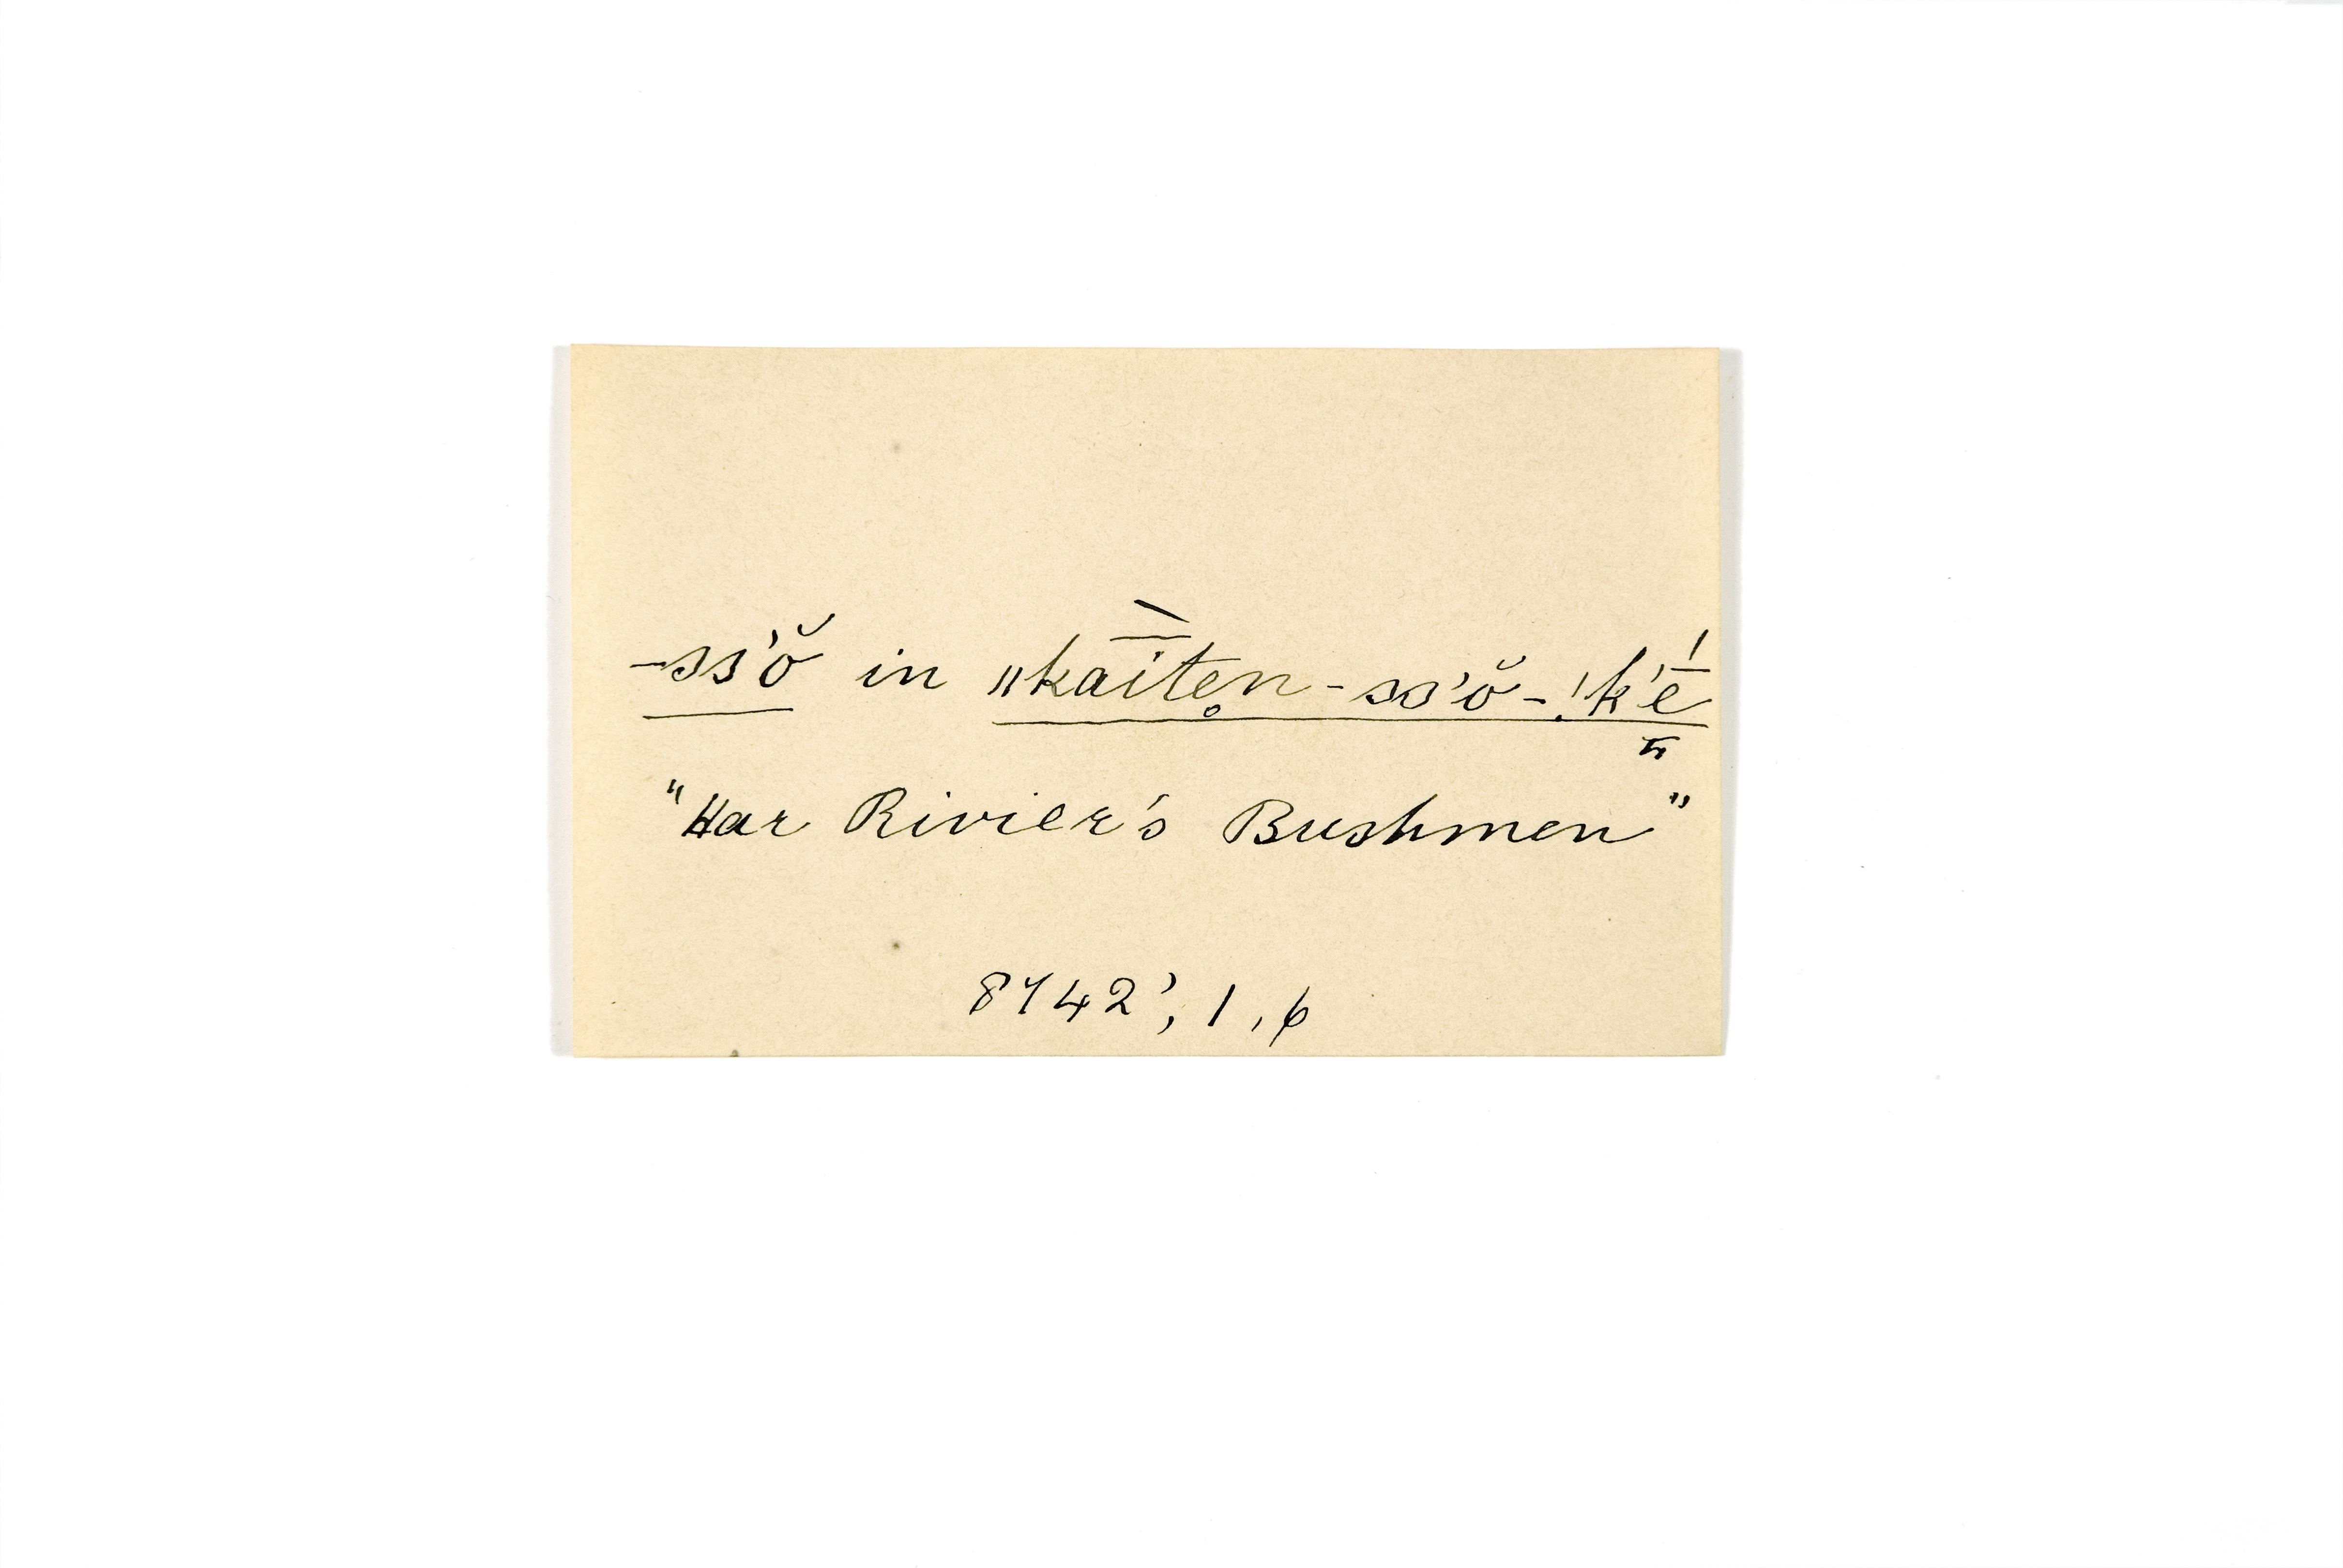 -ss'ŏ in ǁkāìten̥-ss'ŏ-!k'ḗ
"Har Rivier's Bushmen"
8742', 1, 6